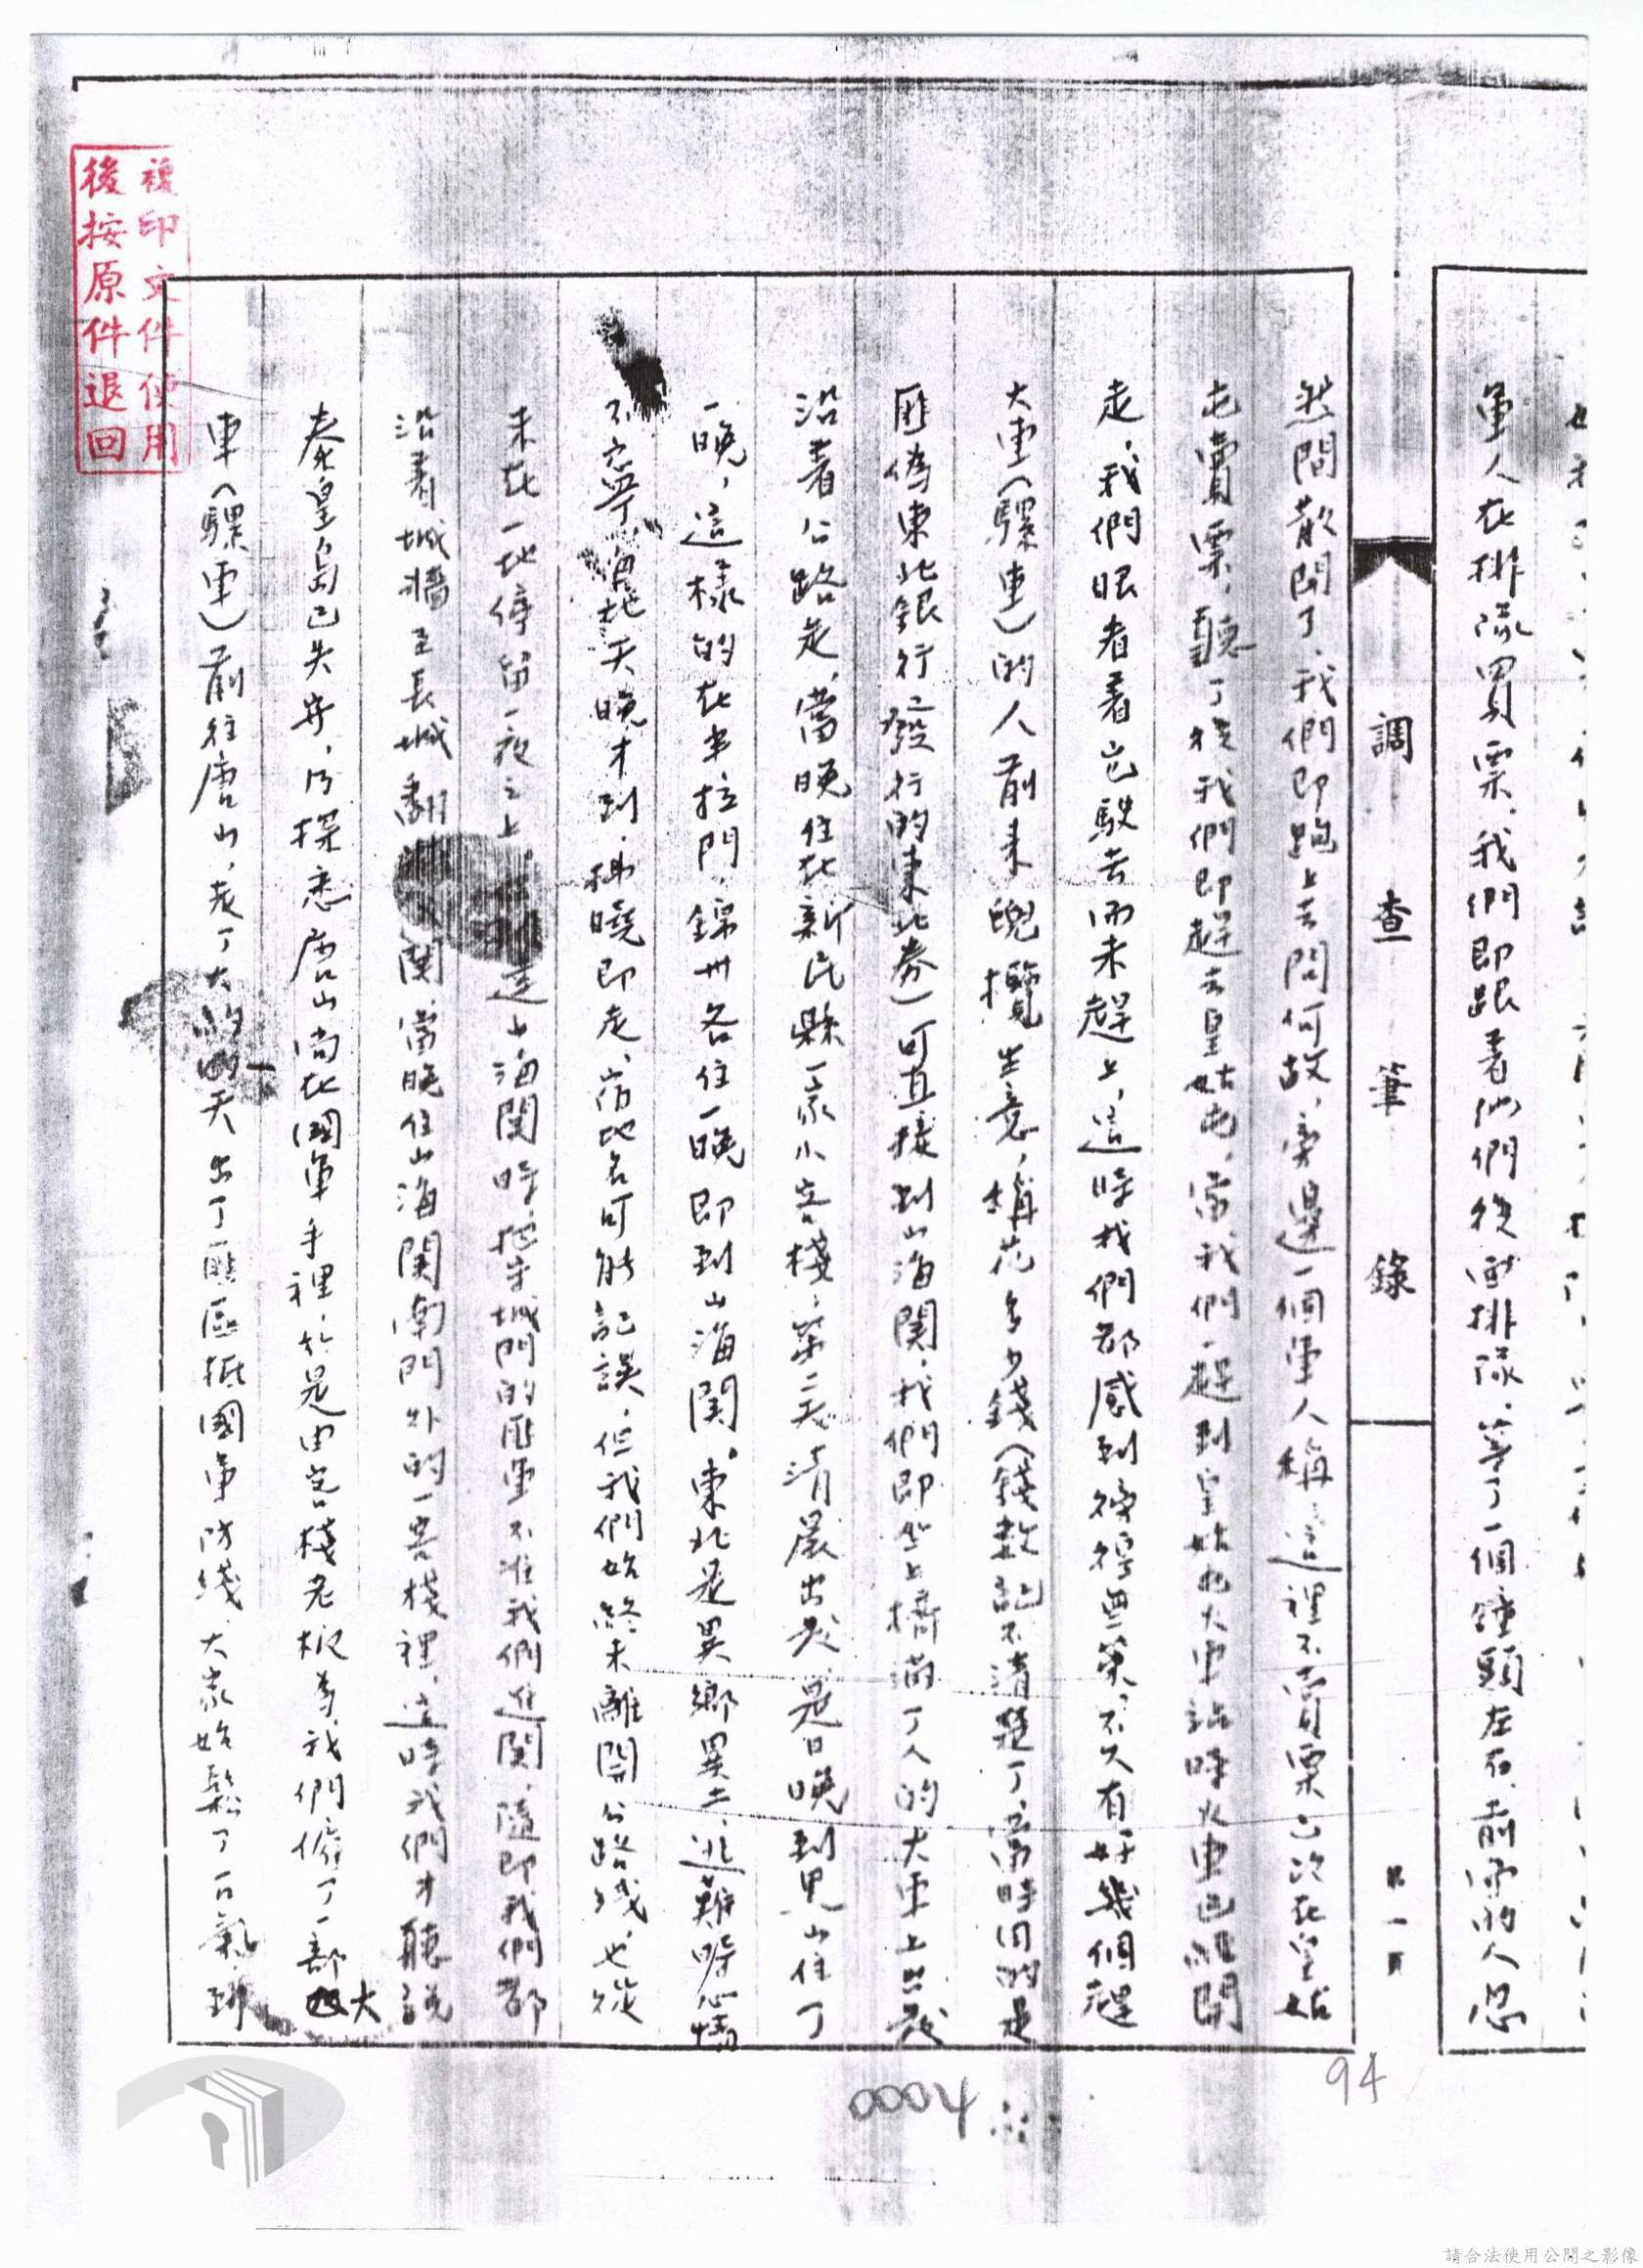 軍人在排隊買票，我們即跟着他們後面排隊，等了一個鐘頭左右，前面的人忽
調查筆錄
第一頁
然間散開了，我們即跑上去問何故，旁邊一個軍人稱這裡不賣票，改在皇姑
屯賣票，聽了後我們即趕去皇姑屯，當我們趕到皇姑屯火車站時火車已經開
走，我們眼看着它駛去而未趕上，這時我們都感到徬徨無策，不久有好幾個趕
大車（騾車）的人前來兜攬生意，稱花多少錢（錢數記不清楚了，當時用的是
匪偽東北銀行發行的東北券）可直接到山海関，我們即坐上擠滿了人的大車上出發
沿着公路走，當晚住在新民縣一家小客棧，第二天清晨出發，是日晚到黑山住了
一晚，這樣的在半拉門，錦州各住一晚即到山海関。東北是異鄉異土，逃難時心情
不寧，每天晚才到，稀曉即走，宿地名可能記誤，但我們始終未離開公路綫，也從
未在一地停留一夜之上，到達山海関時，把守城門的匪軍不准我們進関，隨即我們都
沿着城牆至長城翻関，當晚住山海関南門外的一客棧裡，這時我們才聽說
秦皇島已失守，乃探悉唐山尚在國軍手裡，於是由客棧老板為我們僱了一部大
車（騾車）前往唐山，走了大約一天出了匪區抵國軍防綫，大家始鬆了一口氣，到
94
0004
複印文件使用
後按原件退回
請合法使用公開之影像